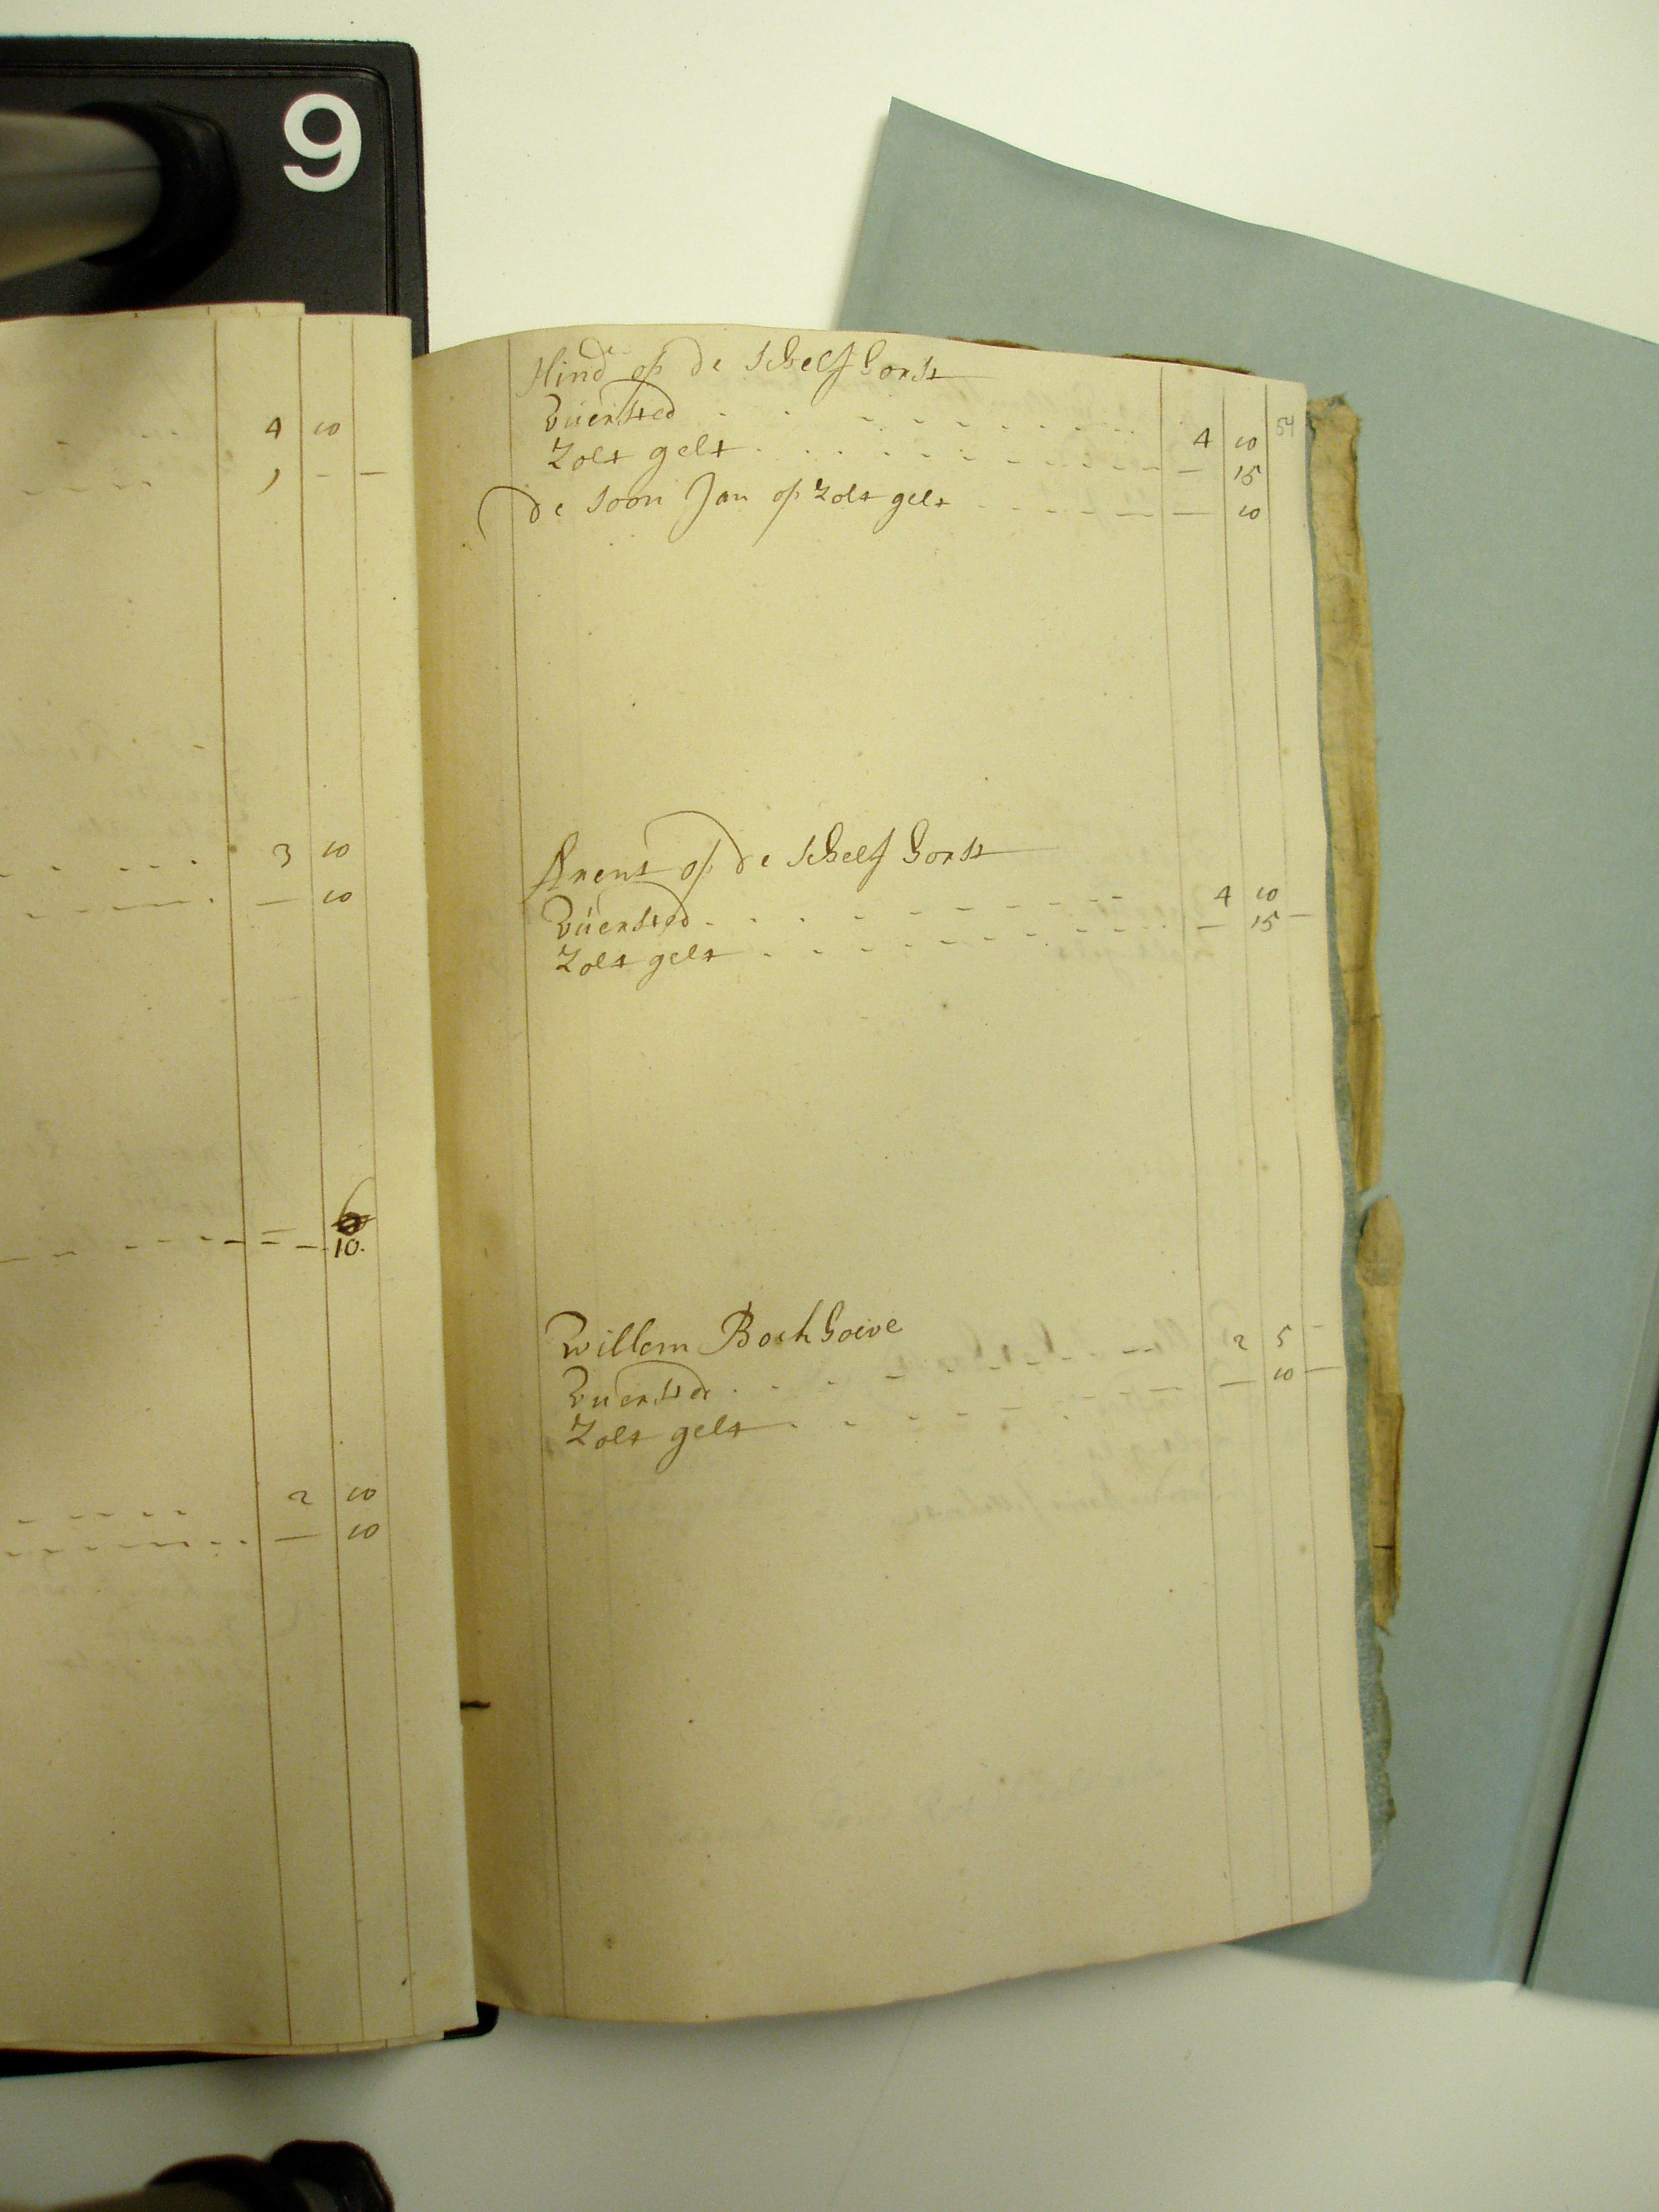 9
4 10
1 - -
3 10
- 10
10.
2 10
- 10
54
Hind op de Schelfhorst
Vuersted 4 10
Zolt gelt - 15
de soon Jan op Zolt gelt - 10
Arent op de Schelfhorst
Vuersted 4 10
Zolt gelt - 15 -
Willem Bochhoeve
Vuersted 2 5 -
Zolt gelt - 10 -